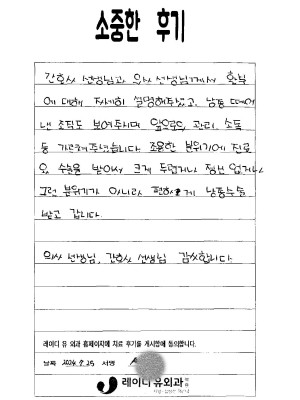 소중한 후기
간호사 선생님과 의사 선생님께서 환부
에 대해 자세히 설명해주셨고, 낭종 떼어
낸 조직도 보여주시며 앞으로의 관리, 소독
등 가르쳐주셨습니다. 조용한 분위기에 진료
와 수술을 받아서 크게 두렵거나 겁먹거나
그런 분위기가 아니라 편하게 낭종수술
받고 갑니다.
의사 선생님, 간호사 선생님 감사합니다.
레이디 유 외과 홈페이지에 치료 후기를 게시함에 동의합니다.
날짜 2024. 9. 25 서명
레이디유외과